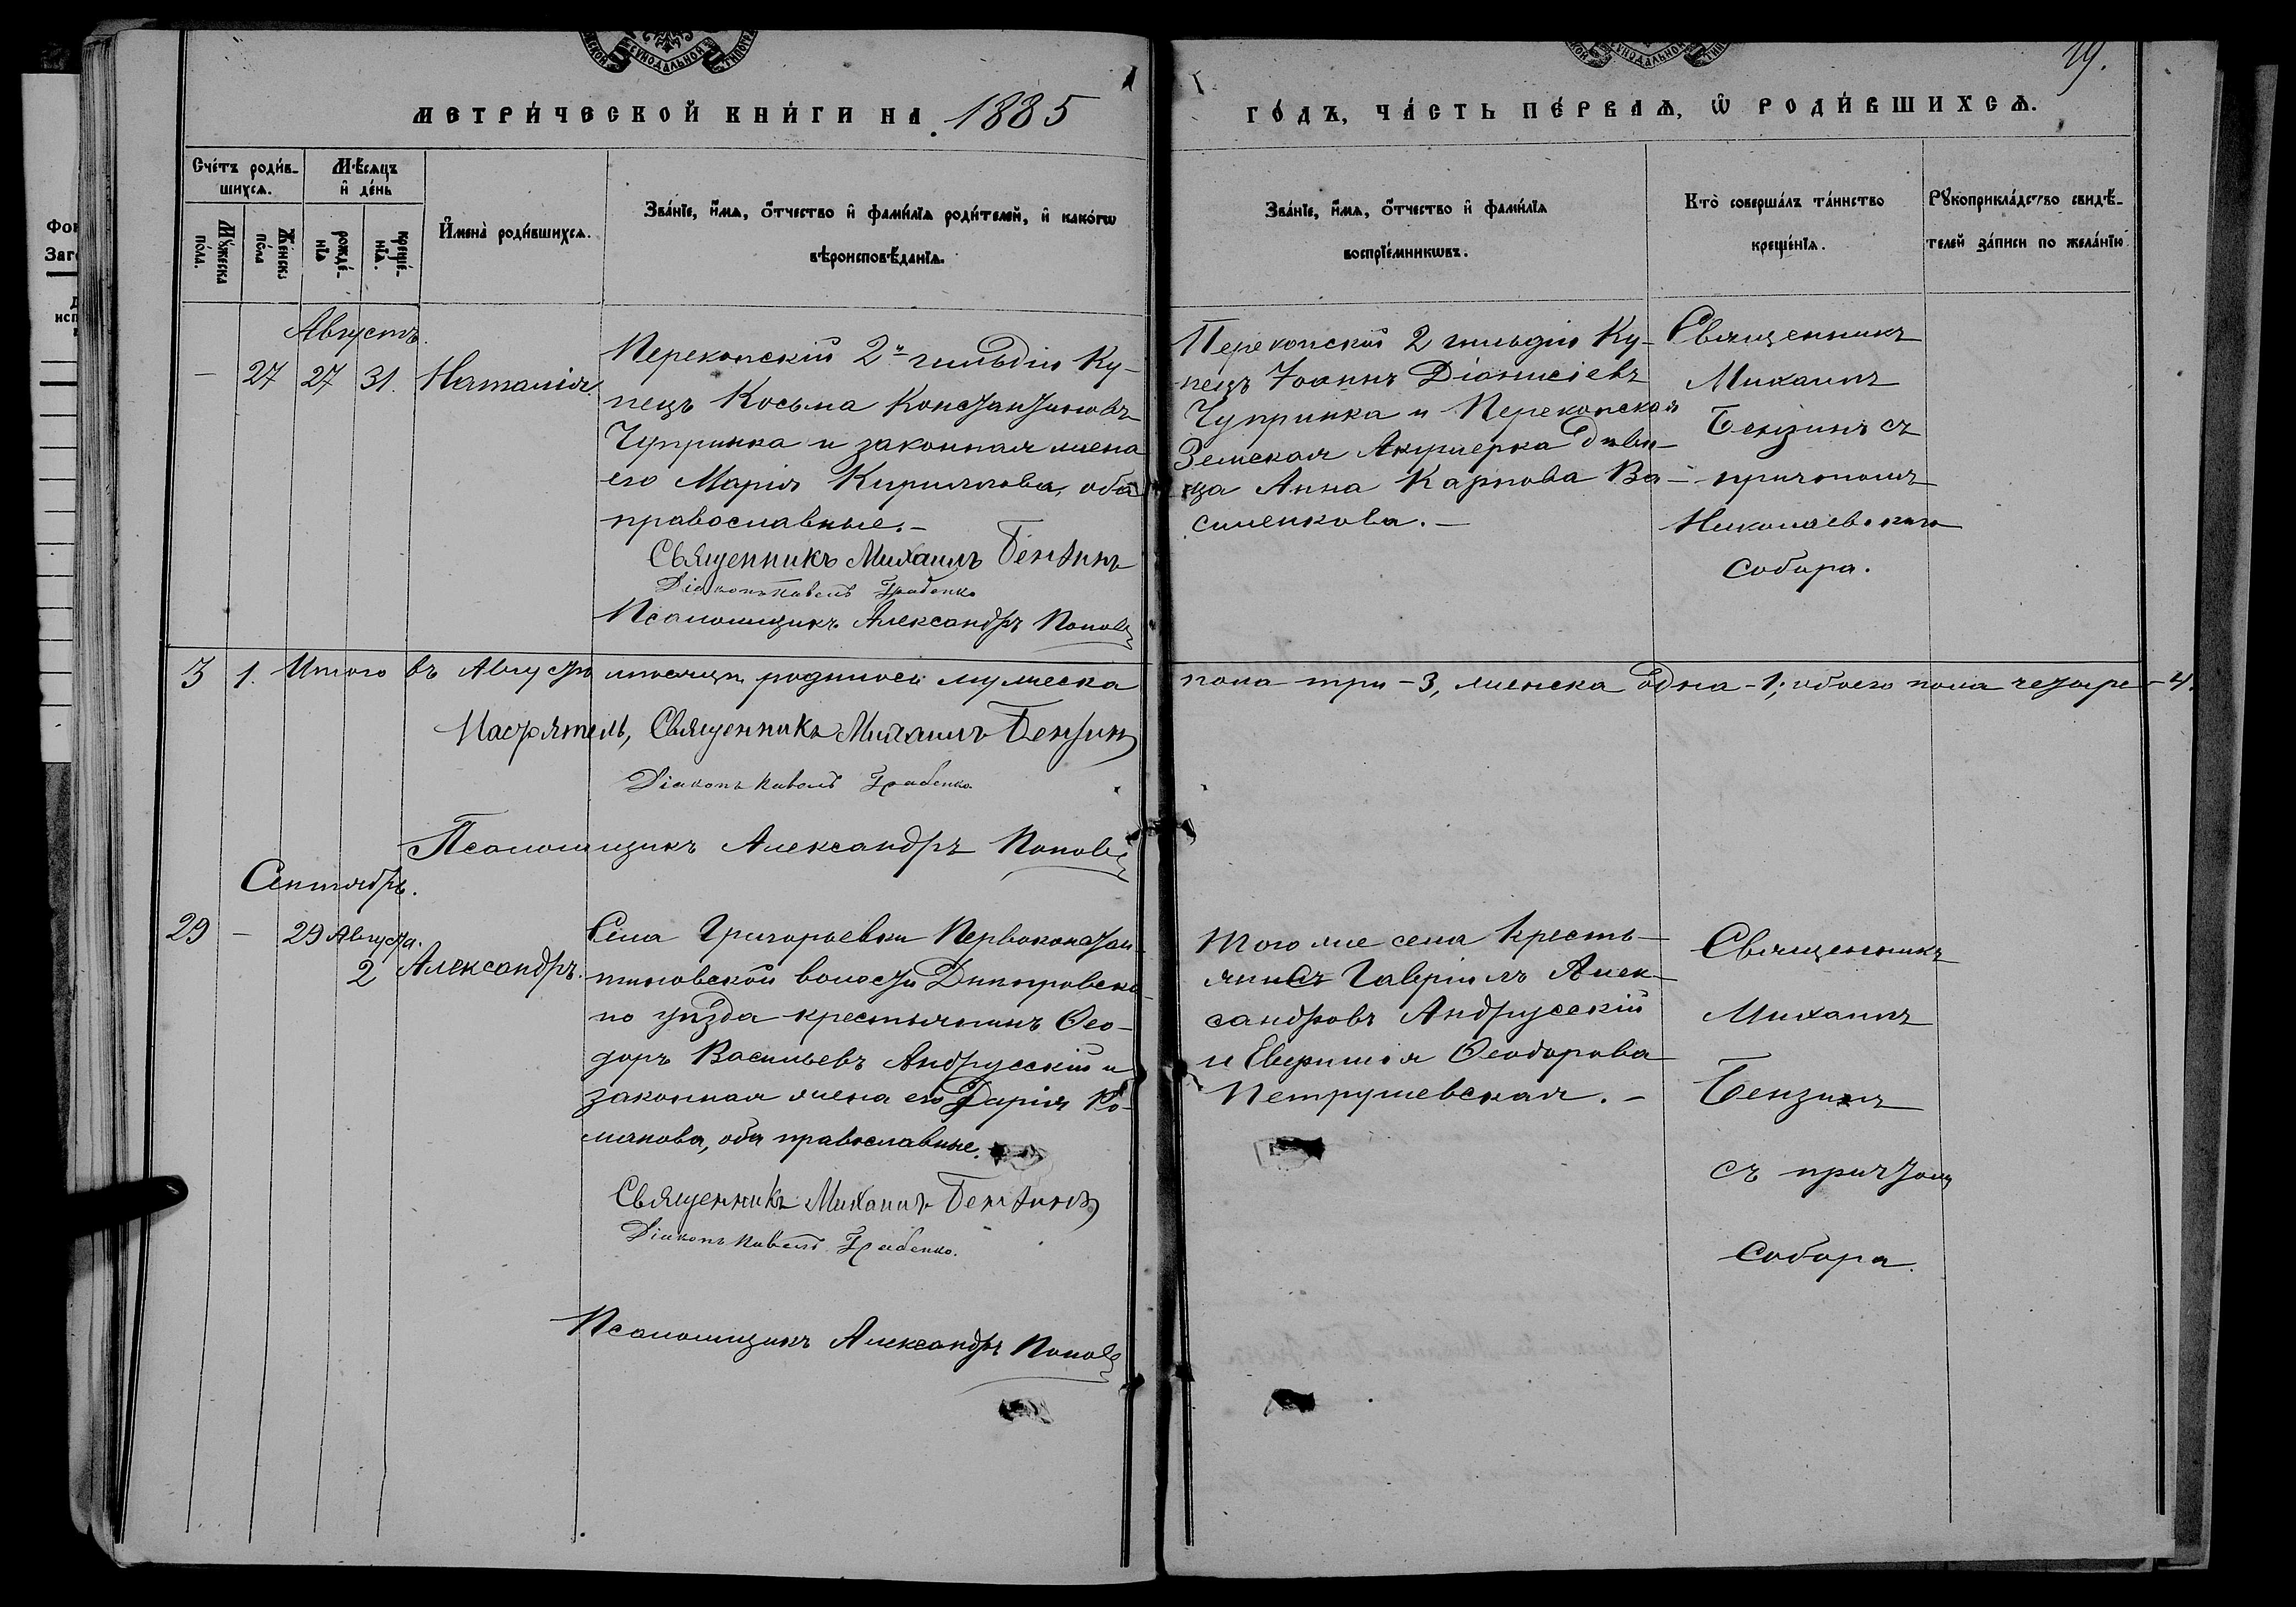 19.
МЕТРИ́ЧЕСКОЙ КНИ́ГИ НА 1885
ГО́ДЪ, ЧА́СТЬ ПЕ́РВАѦ, Ѡ҆ РОДИ́ВШИХСѦ.
Сче́тъ роди́в-
шихсѧ.
Мѣ́сѧцъ
и҆ де́нь
Мꙋ́жеска
по́ла.
Же́нска
по́ла
рожде́-
нїѧ
креще́-
нїѧ.
И҆мена̀ роди́вшихсѧ.
Зва́нїе, и҆́мѧ, ѻ҆́тчество и҆ фами́лїѧ роди́телей, и҆ како́гѡ
вѣроисповѣ́данїѧ.
Зва́нїе, и҆́мѧ, ѻ҆́тчество и҆ фами́лїѧ
воспрїе́мникѡвъ.
Кто̀ соверша́лъ та́инство
креще́нїѧ.
Рꙋкоприкла́дство свидѣ́-
телей за́писи по жела́нїю
Августъ.
— 27 27 31. Наталія.
Перекопскій 2й гильдіи Ку-
пецъ Косьма Константиновъ
Чупринка и законная жена
его Марія Кириллова, оба
православные.—
Священникъ Михаилъ Бензинъ
Діаконъ Павелъ Грабенко
Псаломщикъ Александръ Поповъ
Перекопскій 2 гильдіи Ку-
пецъ Іоаннъ Діонисіевъ
Чупринка и Перекопская
Земская Акушерка дѣви-
ца Анна Карпова Ва-
силенкова.—
Священникъ
Михаилъ
Бензинъ съ
причтомъ
Николаевскаго
Собора.
3 1. Итого въ Августѣ мѣсяцѣ родилось мужеска
пола три -3, женска одна -1; обоего пола четыре -4.
Настоятель, Священникъ Михаилъ Бензинъ
Діаконъ Павелъ Грабенко.
Псаломщикъ Александръ Поповъ
Сентябрь.
29 — 29 Августа.
2 Александръ.
Села Григорьевки Первоконстан-
тиновской волости Днѣпровска-
го уѣзда крестьянинъ Ѳео-
доръ Васильевъ Андрусскій и
законная жена его Дарія Ро-
манова, оба православные.
Священникъ Михаилъ Бензинъ
Діаконъ Павелъ Грабенко.
Псаломщикъ Александръ Поповъ
Того же села кресть-
янинъ Гавріилъ Алек-
сандровъ Андрусскій
и Евфимія Ѳеодорова
Петрушевская.—
Священникъ
Михаилъ
Бензинъ
съ причтомъ
Собора.